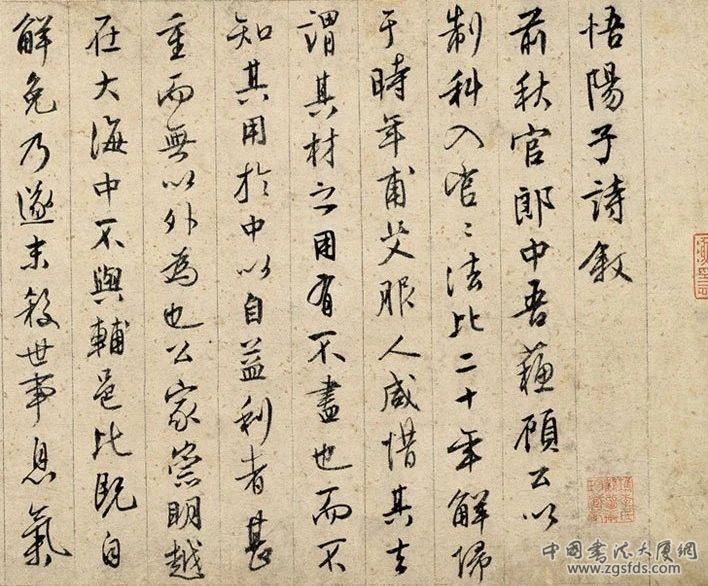 悟陽子詩敘
前秋官郎中吾蘇顧公以
制科入官官法比二十年解歸
于時年甫艾服人咸惜其去
謂其材之用有不盡也而不
知其用於中以自益利者甚
重而無以外為也公家崇明越
在大海中不與輔邑比既自
解免乃遂末殺世事息氣
中国书法大厦网
www.zgsfds.com